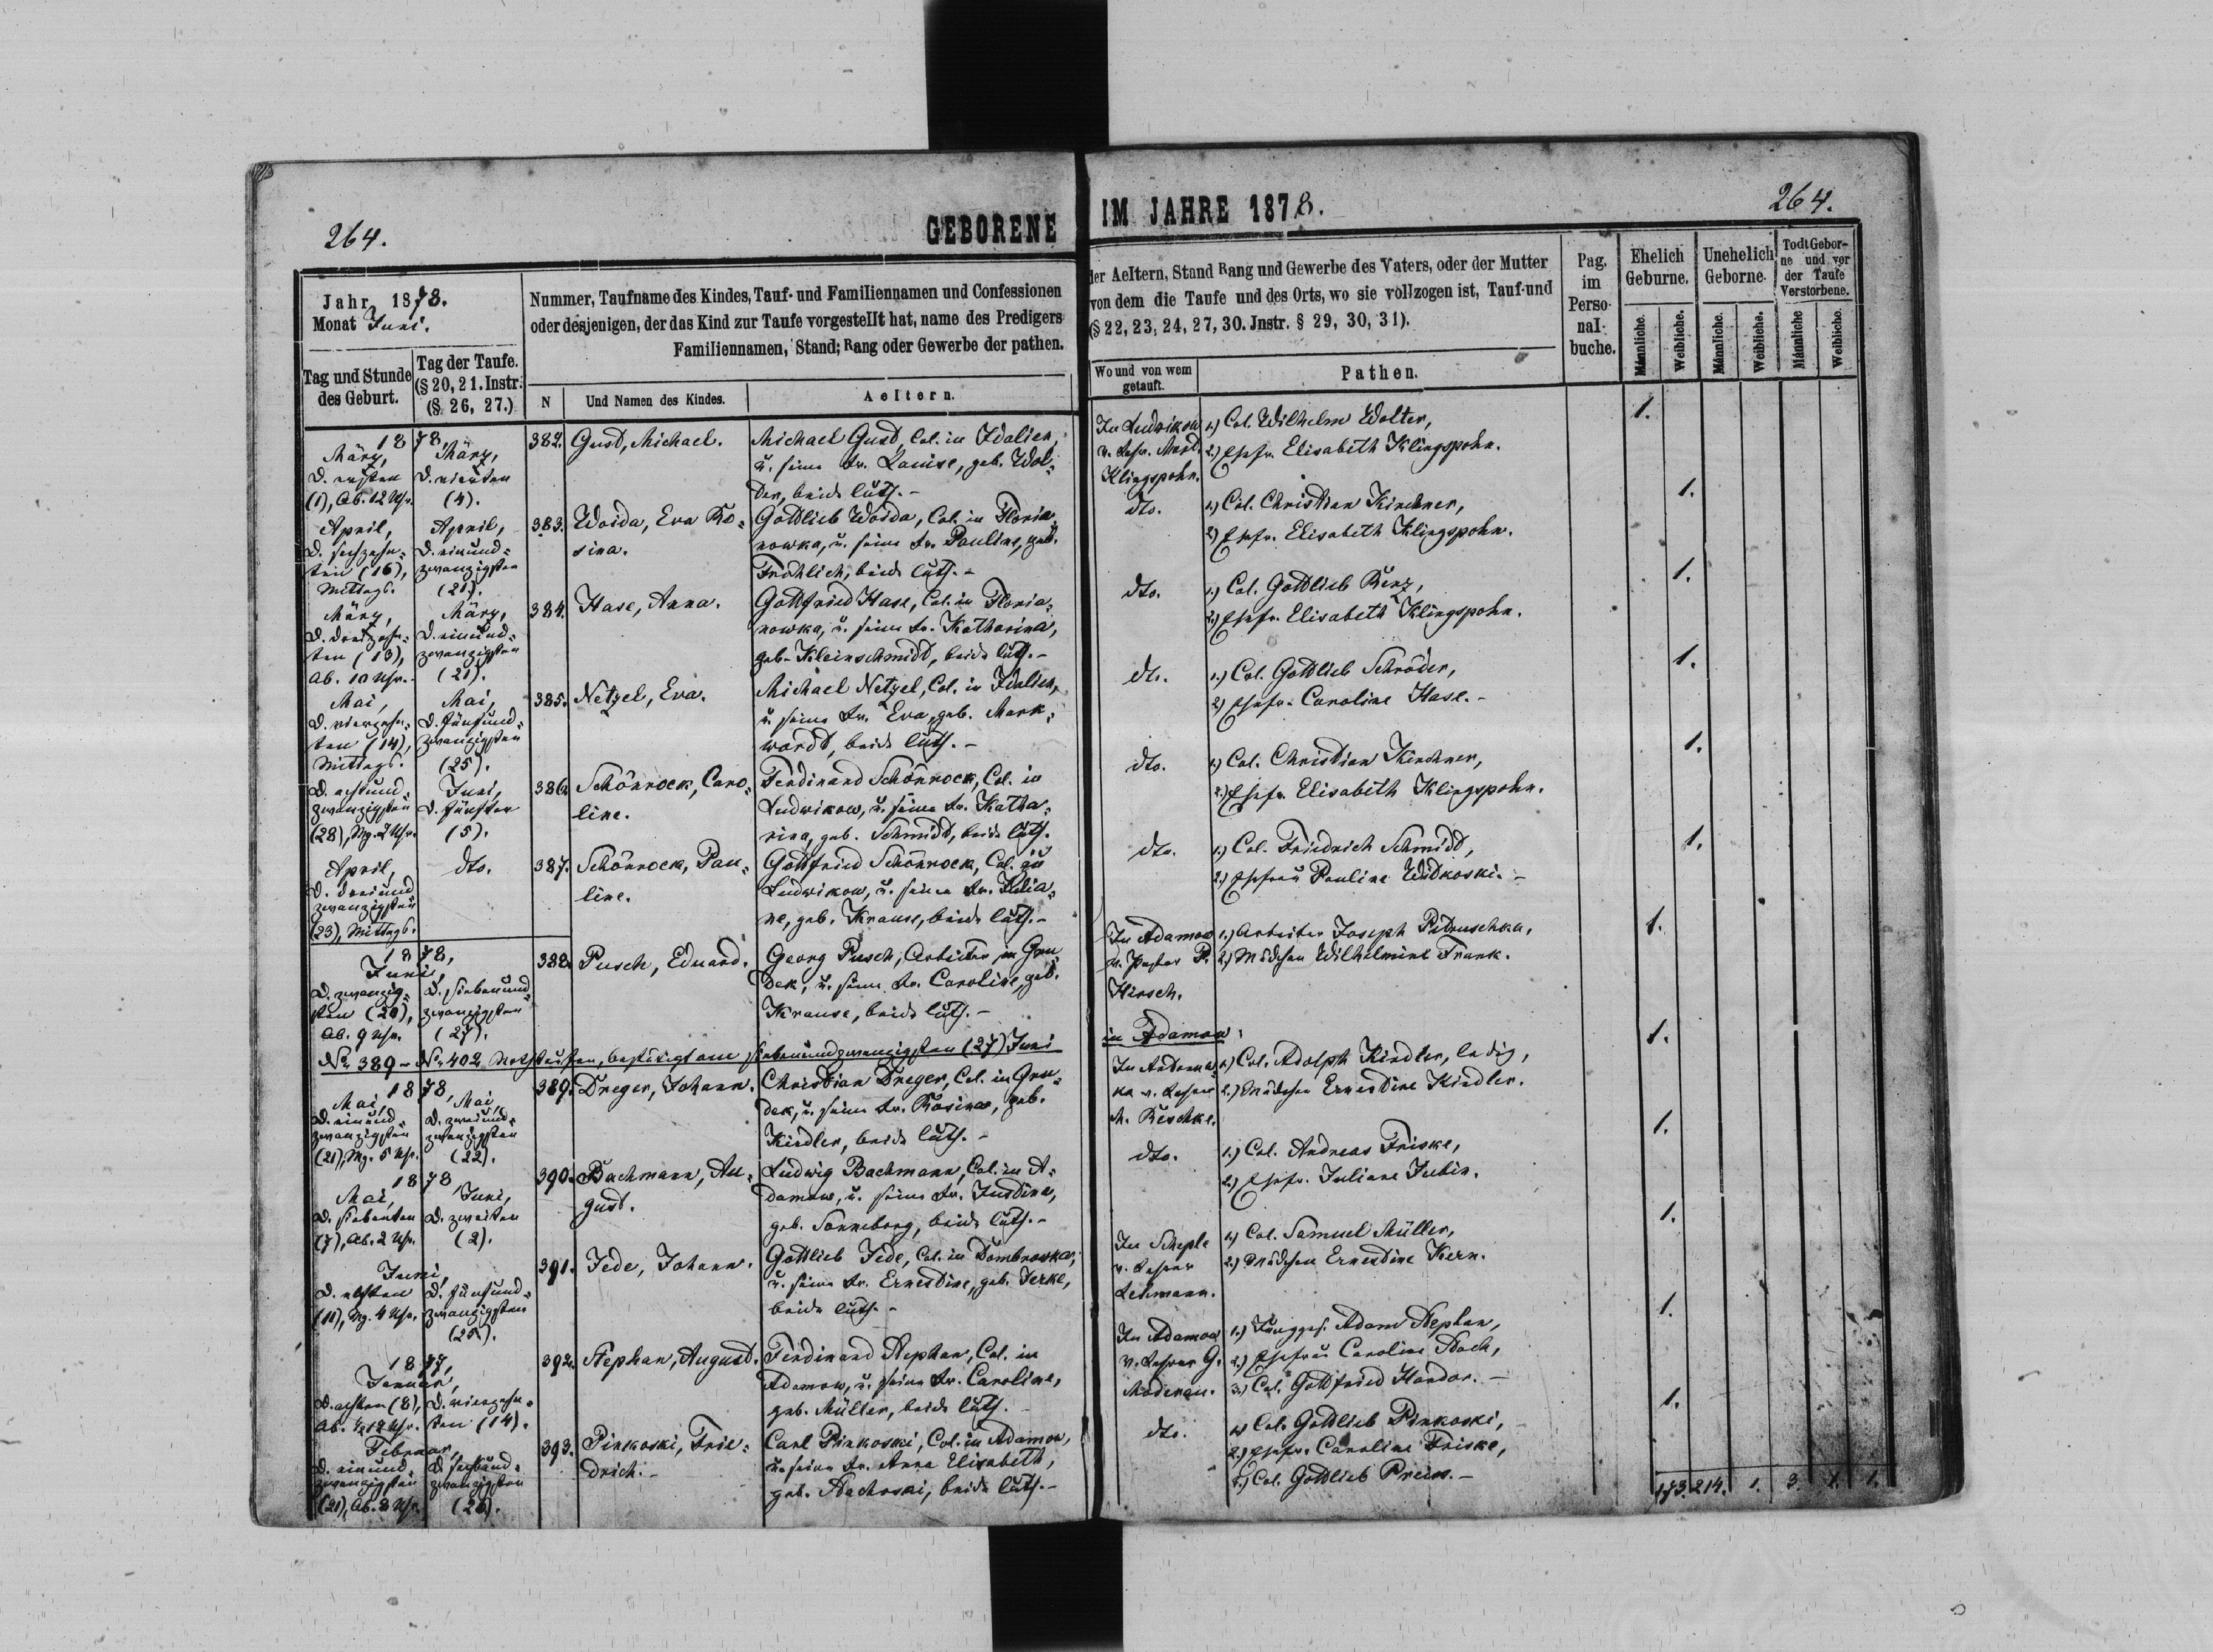 264.
GEBORENE
IM JAHRE 1878.
264.
Jahr 1878.
Monat Juni.
Tag und Stunde
des Geburt.
Tag der Taufe.
(§ 20, 21. Instr.
(§ 26, 27.)
Nummer, Taufname des Kindes, Tauf- und Familiennamen und Confessionen
oder desjenigen, der das Kind zur Taufe vorgestellt hat, name des Predigers
Familiennamen, Stand; Rang oder Gewerbe der pathen.
N
Und Namen des Kindes.
Aeltern.
der Aeltern, Stand Rang und Gewerbe des Vaters, oder der Mutter
von dem die Taufe und des Orts, wo sie vollzogen ist, Tauf-und
(§ 22, 23, 24, 27, 30. Jnstr. § 29, 30, 31).
Wo und von wem
getauft.
Pathen.
Pag.
im
Perso-
nal-
buche.
Ehelich
Geburne.
Unehelich
Geborne.
Todt Gebor-
ne und vor
der Taufe
Verstorbene.
Männliche.
Weibliche.
Männliche.
Weibliche.
Männliche
Weibliche.
1878,
März,
D. ersten
(1), Ab. 12 Uhr.
März,
D. vierten
(4).
382.
Gust, Michael.
Michael Gust, Col. in Idalien,
u. seine Fr. Louise, geb. Wol-
ter, beide luth. -
In Ludwikow
v. Lehr. Mart.
Klingspohn.
1.) Col. Wilhelm Wolter,
2.) Ehefr. Elisabeth Klingspohn.
1.
April,
D. sechzehn-
ten (16),
Mittags.
April,
D. einund-
zwanzigsten
(21).
383.
Woida, Eva Ro-
sina.
Gottlieb Woida, Col. in Floria-
nowka, u. seine Fr. Pauline, geb.
Fröhlich, beide luth. -
dto.
1.) Col. Christian Kirchner,
2.) Ehefr. Elisabeth Klingspohn.
1.
März,
D. dreizehn-
ten (13),
Ab. 10 Uhr.
März,
D. einund-
zwanzigsten
(21).
384.
Hase, Anna.
Gottfried Hase, Col. in Floria-
nowka, u. seine Fr. Katharina,
geb. Kleinschmidt, beide luth. -
dto.
1.) Col. Gottlieb Renz,
2.) Ehefr. Elisabeth Klingspohn.
1.
Mai,
D. vierzehn-
ten (14),
Mittags.
Mai,
D. fünfund-
zwanzigsten
(25).
385.
Netzel, Eva.
Michael Netzel, Col. in Idalien,
u. seine Fr. Eva, geb. Mark-
wardt, beide luth. -
dto.
1.) Col. Gottlieb Schröder,
2.) Ehefr. Caroline Hase. -
1.
D. achtund-
zwanzigsten
(28), Mg. 7 Uhr.
Juni,
D. fünften
(5).
386.
Schönrock, Caro-
line.
Ferdinand Schönrock, Col. in
Ludwikow, u. seine Fr. Katha-
rina, geb. Schmidt, beide luth.
dto.
1.) Col. Christian Kirchner,
2.) Ehefr. Elisabeth Klingspohn.
1.
April,
D. dreiund-
zwanzigsten
(23), Mittags.
dto.
387.
Schönrock, Pau-
line.
Gottfried Schönrock, Col. zu
Ludwikow, u. seine Fr. Julia-
ne, geb. Krause, beide luth. -
dto.
1.) Col. Friedrich Schmidt,
2.) Ehefrau Pauline Witkoski. -
1.
1878,
Juni,
D. zwanzig-
sten (20),
Ab. 9 Uhr.
D. siebenund-
zwanzigsten
(27).
388.
Pusch, Eduard.
Georg Pusch, Arbeiter in Gru-
dek, u. seine Fr. Caroline, geb.
Krause, beide luth. -
In Adamow
v. Pastor P.
Hirsch.
1.) Arbeiter Joseph Petruschka,
2.) Mädchen Wilhelmine Frank.
1.
No 389 - No 402 Nothtaufen, bestätigt am siebenundzwanzigsten (27) Juni
in Adamow:
1878,
Mai,
D. einund-
zwanzigsten
(21), Mg. 5 Uhr.
Mai,
D. zweiund-
zwanzigsten
(22).
389.
Dreger, Johann.
Christian Dreger, Col. in Gru-
dek, u. seine Fr. Rosina, geb.
Kindler, beide luth. -
v. Lehrer
M. Reschke.
1.) Col. Adolph Kindler, ledig,
2.) Mädchen Ernestine Kindler.
1.
1878
Mai,
D. siebenten
(7), Ab. 2 Uhr.
Juni,
D. zweiten
(2).
390.
Bachmann, Au-
gust.
Ludwig Bachmann, Col. in A-
damow, u. seine Fr. Justine,
geb. Sonneborg, beide luth. -
dto.
1.) Col. Andreas Friske,
2.) Ehefr. Juliane Jubin.
1.
Juni,
D. elften
(11), Mg. 4 Uhr.
D. fünfund-
zwanzigsten
(25).
391.
Jede, Johann.
Gottlieb Jede, Col. in Dombrowka,
u. seine Fr. Ernestine, geb. Jerke,
beide luth. -
v. Lehrer
Lehmann.
1.) Col. Samuel Müller,
2.) Mädchen Ernestine Kern.
1.
1877,
Januar,
D. achten (8),
Ab. ½12 Uhr.
D. vierzehn-
ten (14).
392.
Stephan, August.
Ferdinand Stephan, Col. in
Adamow, u. seine Fr. Caroline,
geb. Müller, beide luth. -
In Adamow
v. Lehrer G.
1.) Junggs. Adam Stephan,
2.) Ehefrau Caroline Stach,
3.) Col. Gottfried
1.
Februar,
D. einund-
zwanzigsten
(21), Ab. 8 Uhr.
D. sechsund-
zwanzigsten
(26).
393.
Pinkoski, Frie-
drich. -
Carl Pinkoski, Col. in Adamow,
u. seine Fr. Anna Elisabeth,
geb. Stachoski, beide luth. -
dto.
1.) Col. Gottlieb Pinkoski,
2.) Ehefr. Caroline Friske,
3.) Col. Gottlieb Preiss. -
1.
173. 214. 1. 3. 1. 1.